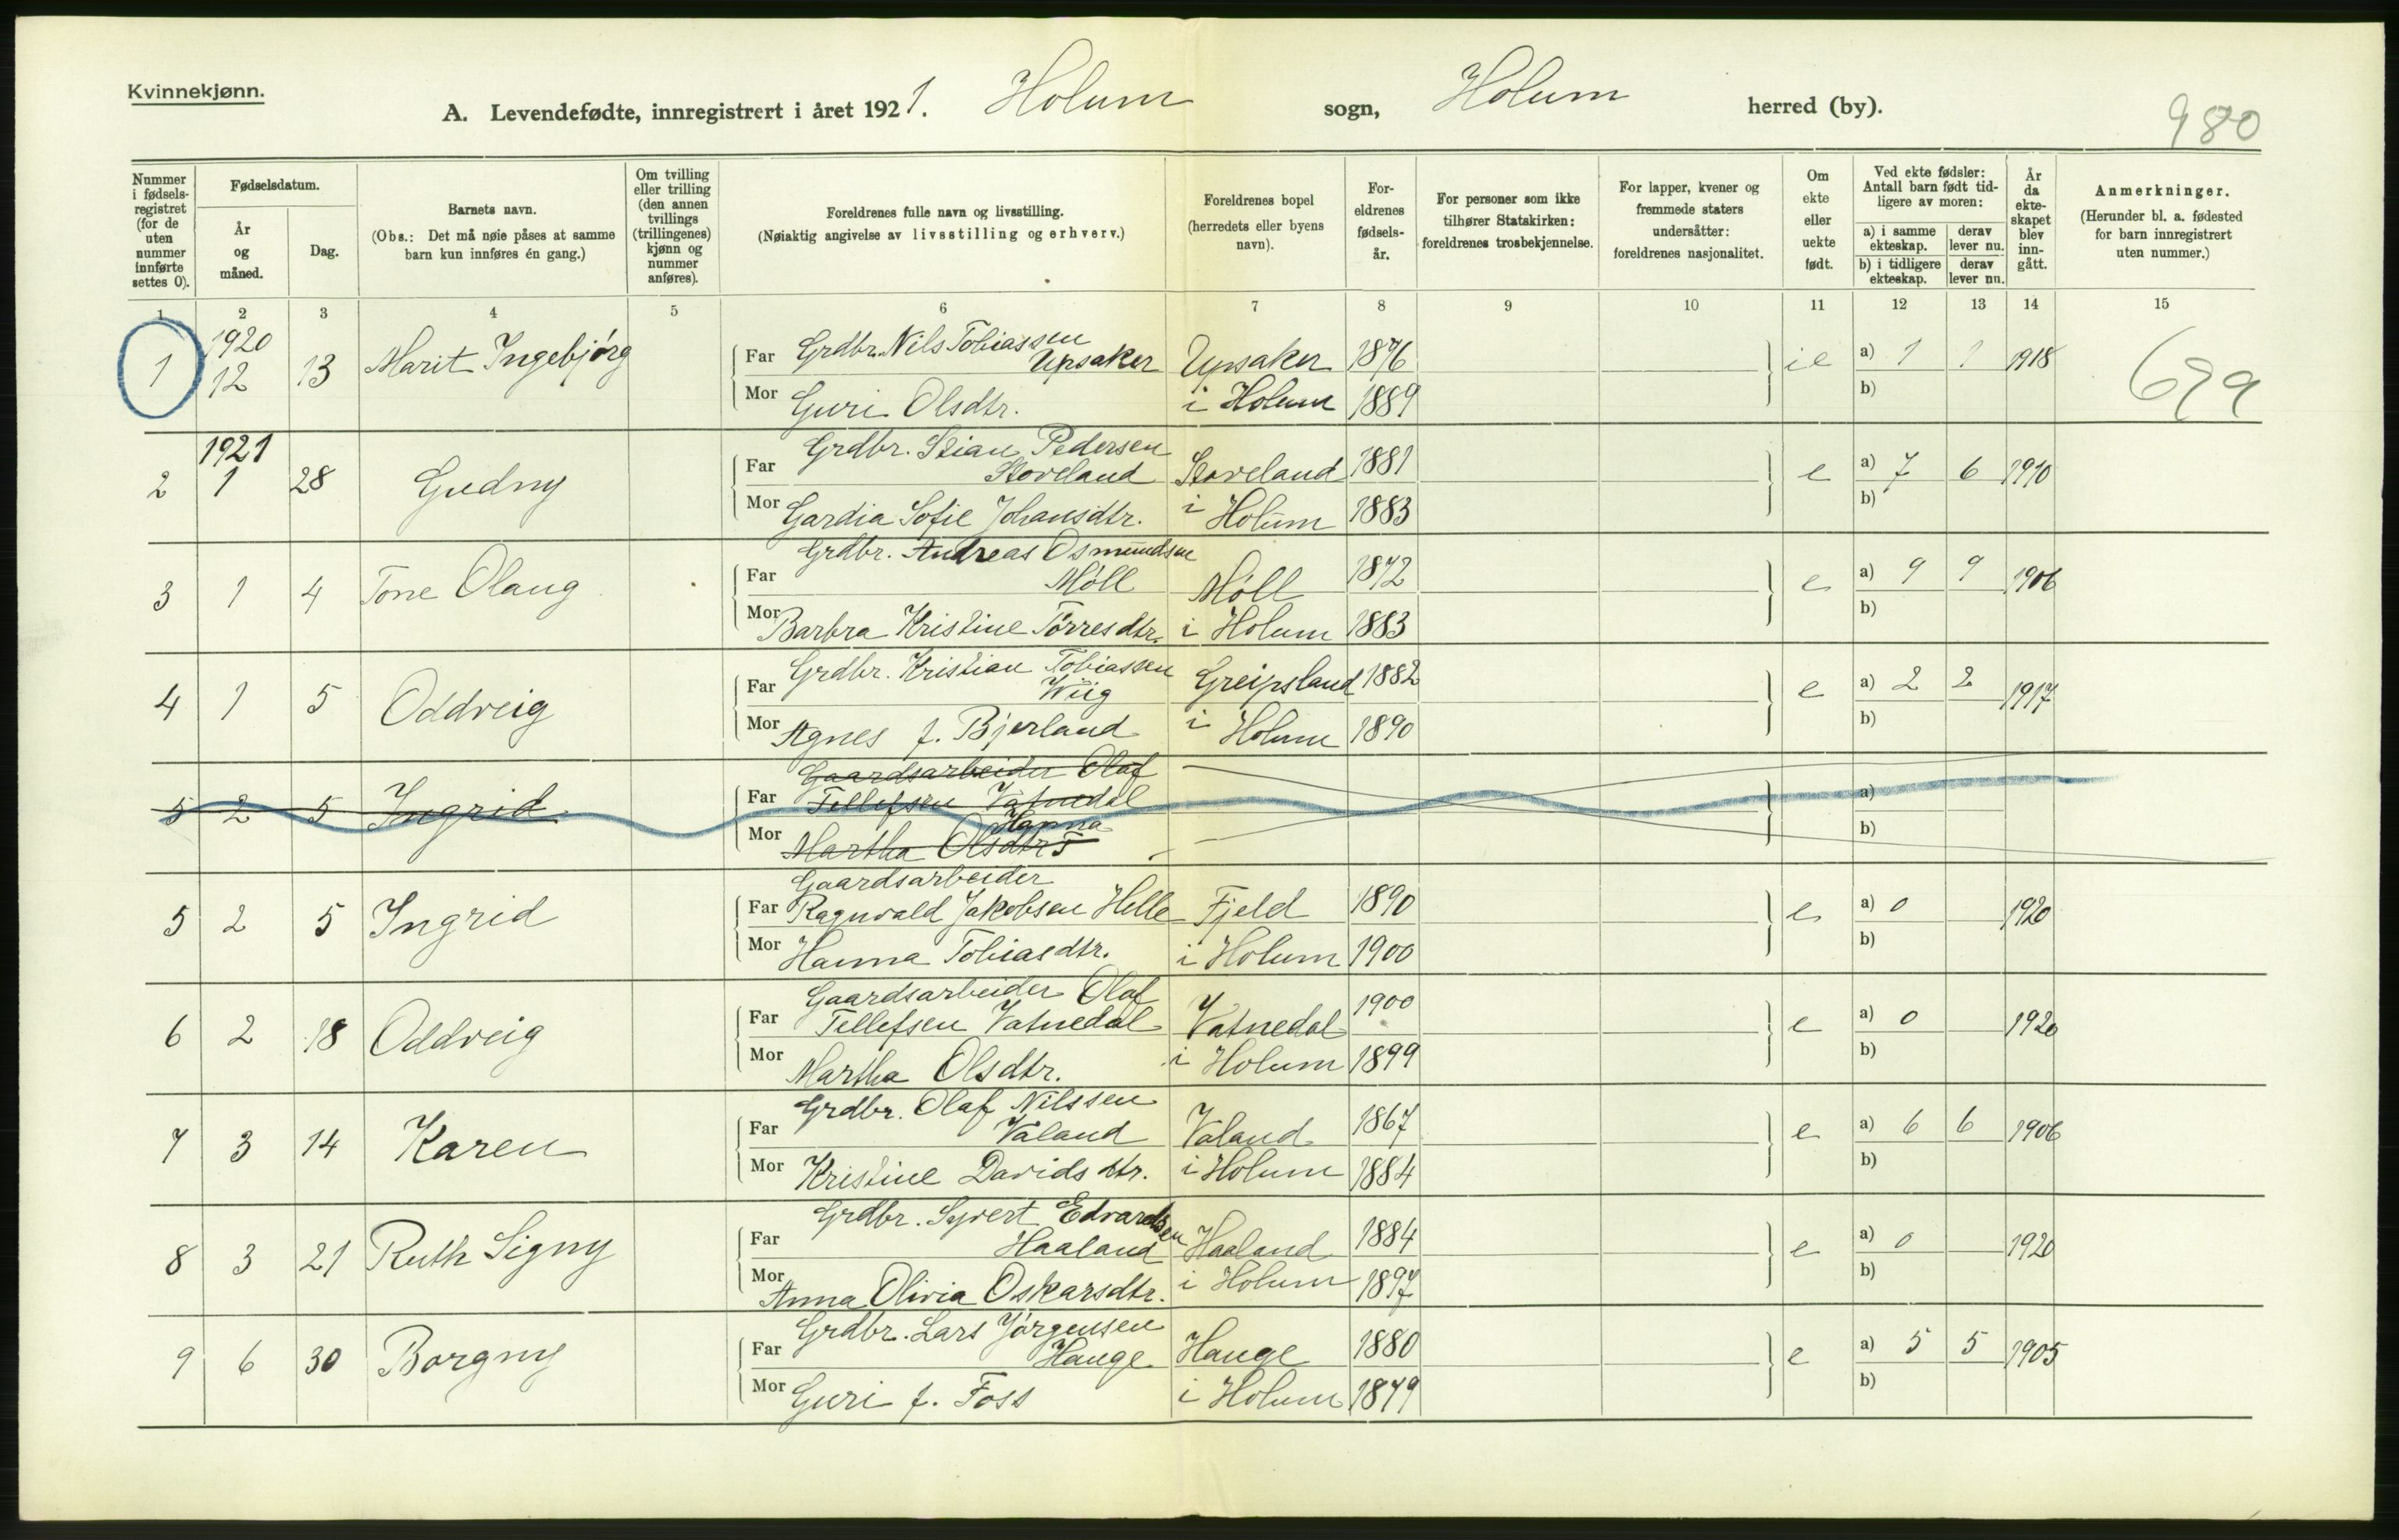 Kvinnekjønn.
A. Levendefødte, innregistrert i året 1921. Holum sogn, Holum herred (by).
980
Nummer i fødsels-registret (for de uten nummer innførte settes 0).
Fødselsdatum.
År og måned.
Dag.
Barnets navn.
(Obs.: Det må nøie påses at samme barn kun innføres én gang.)
Om tvilling eller trilling (den annen tvillings (trillingenes) kjønn og nummer anføres).
Foreldrenes fulle navn og livsstilling.
(Nøiaktig angivelse av livsstilling og erhverv.)
Foreldrenes bopel
(herredets eller byens navn).
For-eldrenes fødsels-år.
For personer som ikke tilhører Statskirken: foreldrenes trosbekjennelse.
For lapper, kvener og fremmede staters undersåtter: foreldrenes nasjonalitet.
Om ekte eller uekte født.
Ved ekte fødsler: Antall barn født tid-ligere av moren:
a) i samme ekteskap.
derav lever nu.
b) i tidligere ekteskap.
derav lever nu.
År da ekte-skapet blev inn-gått.
Anmerkninger.
(Herunder bl. a. fødested for barn innregistrert uten nummer.)
1 2 3 4 5 6 7 8 9 10 11 12 13 14 15
1 1920 12 13 Marit Ingebjørg
Far Grdbr. Nils Tobiassen Upsaker Upsaker 1876
Mor Guri Olsdtr. i Holum 1889
a) 1 1 1918
b)
2 1921 1 28 Gudny
Far Grdbr. Stian Pedersen Stoveland Stoveland 1881
Mor Gardia Sofie Johansdtr. i Holum 1883
e a) 7 6 1910
b)
3 1 4 Tone Olaug
Far Grdbr. Andreas Osmundsen Møll Møll 1872
Mor Barbra Kristine Tørresdtr. i Holum 1883
e a) 9 9 1906
b)
4 1 5 Oddveig
Far Grdbr. Kristian Tobiassen Wiig Greipsland 1882
Mor Agnes f. Bjerland i Holum 1890
e a) 2 2 1917
b)
5 2 5 Ingrid
Far Gaardsarbeider Olaf Tellefsen Vatnedal
Mor Martha Olsdtr Hanna T
a)
b)
5 2 5 Ingrid
Far Gaardsarbeider Ragnvald Jakobsen Helle Fjeld 1890
Mor Hanna Tobiasdtr. i Holum 1900
e a) 0 1920
b)
6 2 18 Oddveig
Far Gaardsarbeider Olaf Tellefsen Vatnedal Vatnedal 1900
Mor Martha Olsdtr. i Holum 1899
e a) 0 1920
b)
7 3 14 Karen
Far Grdbr. Olaf Nilssen Valand Valand 1867
Mor Kristine Davidsdtr. i Holum 1884
e a) 6 6 1906
b)
8 3 21 Ruth Signy
Far Grdbr. Syvert Edvardsen Haaland Haaland 1884
Mor Anna Olivia Oskarsdtr. i Holum 1897
e a) 0 1920
b)
9 6 30 Borgny
Far Grdbr. Lars Jørgensen Hauge Hauge 1880
Mor Guri f. Foss i Holum 1879
e a) 5 5 1905
b)